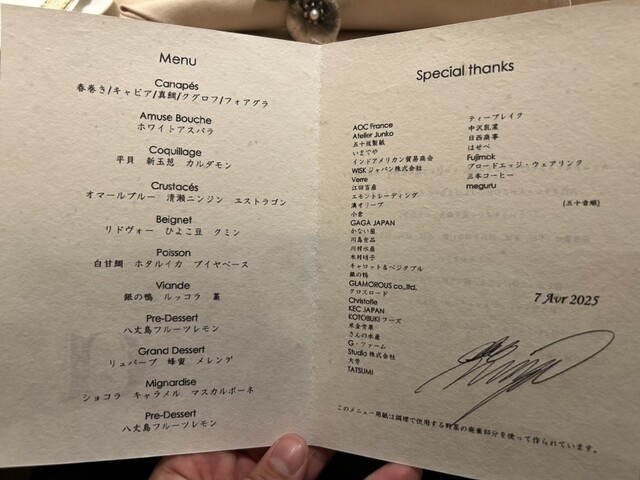 Menu
Canapés
春巻き/キャビア/真鯛/クグロフ/フォアグラ
Amuse Bouche
ホワイトアスパラ
Coquillage
平貝 新玉葱 カルダモン
Crustacés
オマールブルー 清瀬ニンジン エストラゴン
Beignet
リドヴォー ひよこ豆 クミン
Poisson
白甘鯛 ホタルイカ ブイヤベース
Viande
銀の鴨 ルッコラ 菫
Pre-Dessert
八丈島フルーツレモン
Grand Dessert
リュバーブ 蜂蜜 メレンゲ
Mignardise
ショコラ キャラメル マスカルポーネ
Pre-Dessert
八丈島フルーツレモン
Special thanks
AOC France
Atelier Junko
五十嵐製紙
いまでや
インドアメリカン貿易商会
WISK ジャパン株式会社
Verre
江田畜産
エモントレーディング
澳オリーブ
小倉
GAGA JAPAN
かない屋
川島食品
川村水産
木村硝子
キャロット&ベジタブル
銀の鴨
GLAMOROUS co.,ltd.
クロスロード
Christofle
KEC JAPAN
KOTOBUKI フーズ
米金青果
さんの水産
G・ファーム
Studio 株式会社
大芳
TATSUMI
ティーブレイク
中沢乳業
日西商事
はせべ
Fujimak
ブロードエッジ・ウェアリンク
三本コーヒー
meguru
(五十音順)
7 Avr 2025
このメニュー用紙は調理で使用する野菜の廃棄部分を使って作られています。